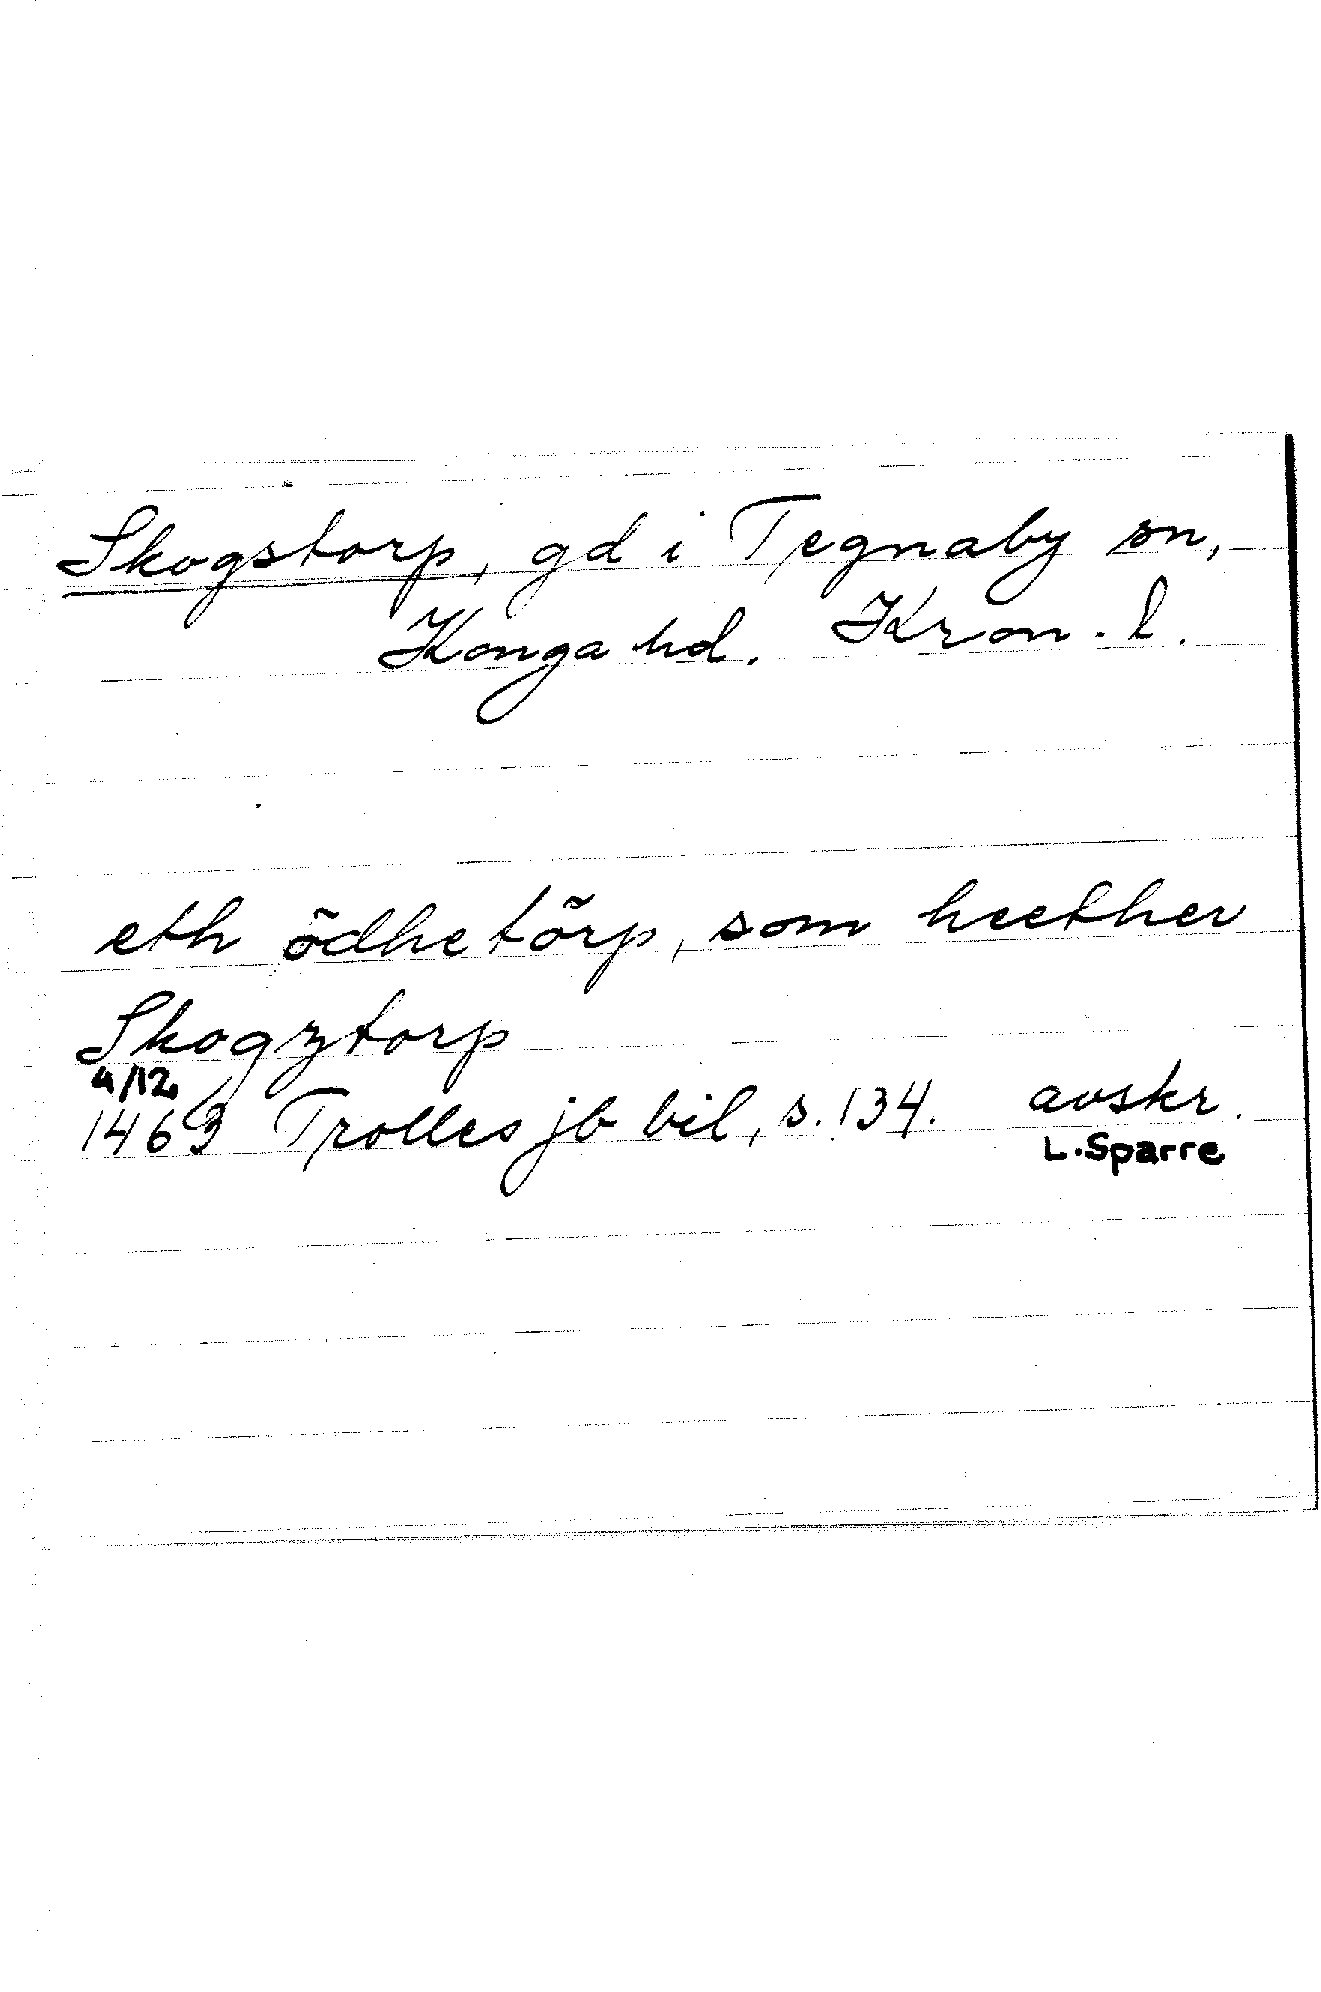 Skogstorp, gd i Tegnaby sn,
Konga hd. Kron. l.
eth ödhetörp, som heether
Skogztorp
4/12
1463 Trolles jb bil, s. 134. avskr.
L. Sparre